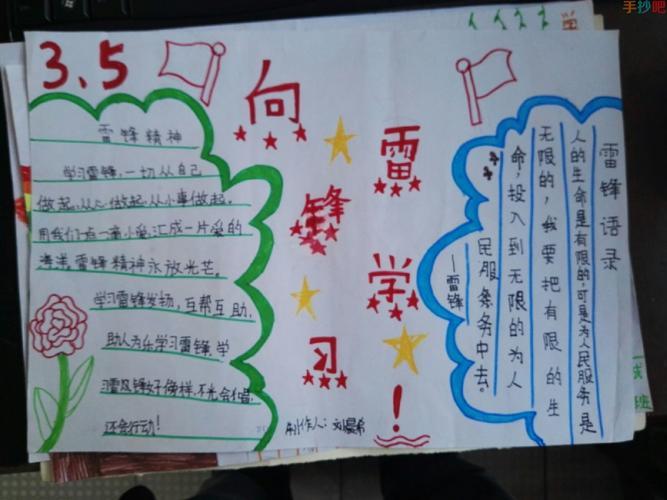 手抄吧
3.5
向雷锋学习！
雷锋精神
学习雷锋，一切从自己
做起，从心做起，从小事做起。
用我们一点一滴小爱，汇成一片爱的
海洋，雷锋精神永放光芒。
学习雷锋发扬，互帮互助，
助人为乐学习雷锋，学
习雷锋好榜样，不光会唱，
还会行动！
雷锋语录
人的生命是有限的，可是为人民服务是
无限的，我要把有限的生
命，投入到无限的为人
民服务中去。
——雷锋
制作人：刘